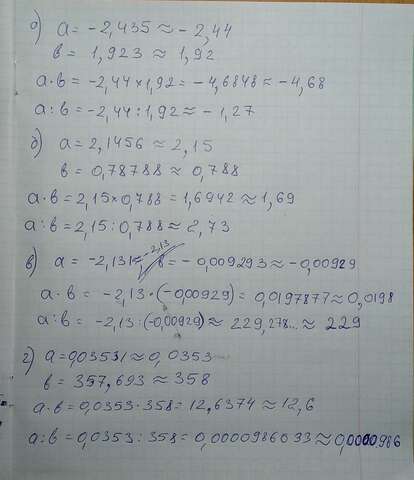 а) a = -2,435 ≈ -2,44
в = 1,923 ≈ 1,92
a·в = -2,44×1,92 = -4,6848 ≈ -4,68
a:в = -2,44:1,92 ≈ -1,27
б) a = 2,1456 ≈ 2,15
в = 0,78788 ≈ 0,788
a·в = 2,15×0,788 = 1,6942 ≈ 1,69
a:в = 2,15:0,788 ≈ 2,73
в) a = -2,131 ≈ -2,13 в = -0,009293 ≈ -0,00929
a·в = -2,13·(-0,00929) = 0,0197877 ≈ 0,0198
a:в = -2,13:(-0,00929) ≈ 229,278... ≈ 229
г) a = 0,03531 ≈ 0,0353
в = 357,693 ≈ 358
a·в = 0,0353·358 = 12,6374 ≈ 12,6
a:в = 0,0353:358 = 0,0000986033 ≈ 0,0000986